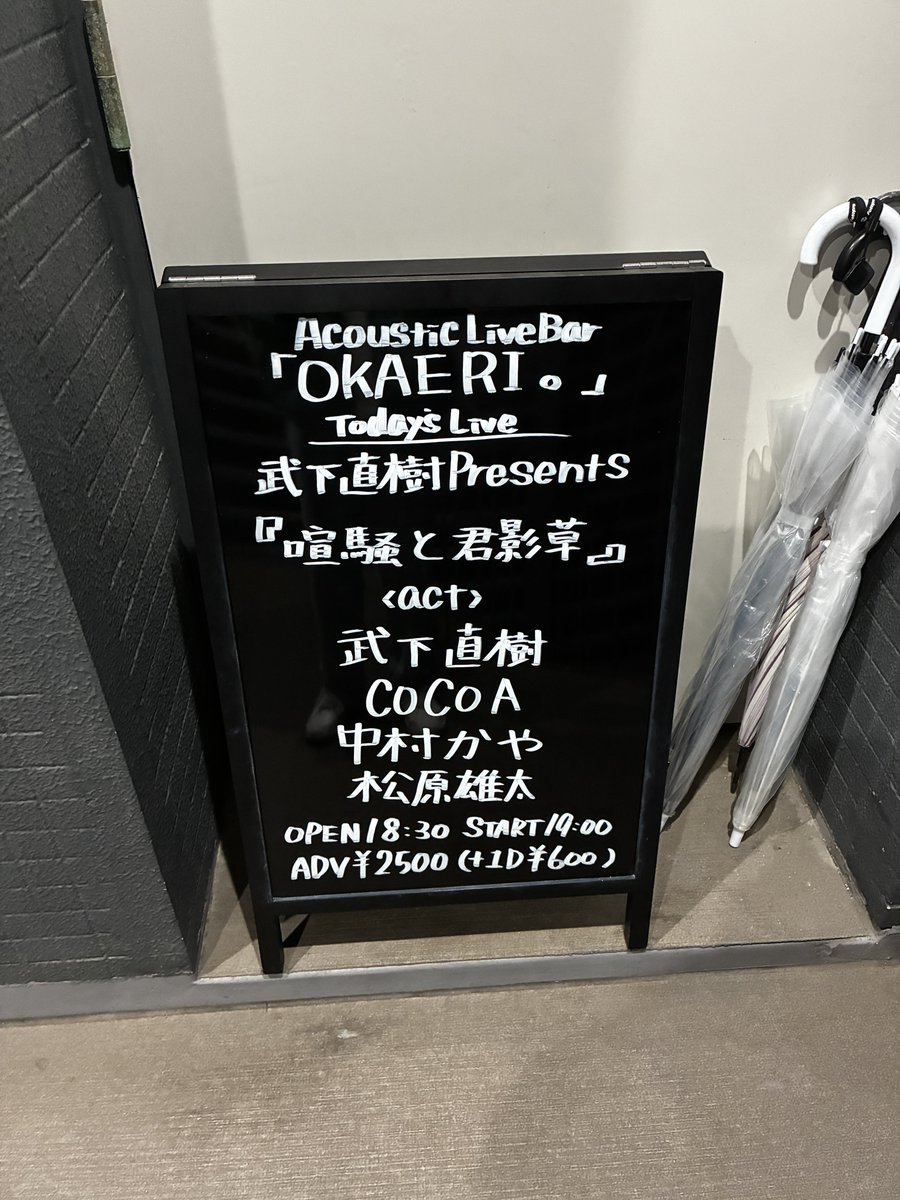 Acoustic Live Bar
「OKAERI。」
Today's Live
武下直樹 Presents
『喧騒と君影草』
<act>
武下直樹
COCOA
中村かや
松原雄太
OPEN/18:30 START/19:00
ADV¥2500(+1D¥600)